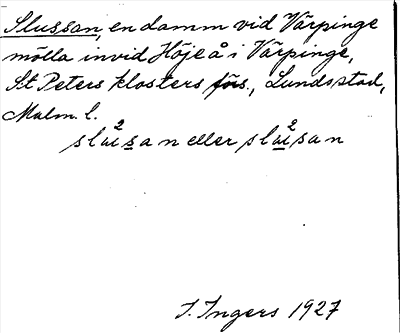 Slussan, en damm vid Värpinge
mölla invid Höje å i Värpinge,
St Peters klosters förs., Lunds stad,
Malm. l.
eller
I. Ingers 1927